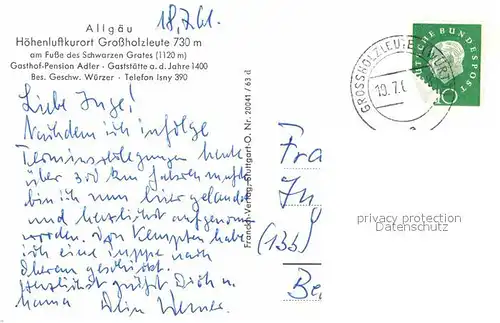 18.7.61.
Allgäu
Höhenluftkurort Großholzleute 730 m
am Fuße des Schwarzen Grates (1120 m)
Gasthof-Pension Adler · Gaststätte a. d. Jahre 1400
Bes. Geschw. Würzer · Telefon Isny 390
Liebe Inge!
Nachdem ich infolge
Terminverlegungen heute
über 300 km fahren mußte
bin ich nun hier gelandet
und herzlichst aufgenommen
worden. Von Kempten habe
ich eine nach
geschickt.
Herzlichst grüßt Dich u.
Mama Dein Werner
Franckh-Verlag, Stuttgart-O. Nr. 20041/63 d
Fra
In
(13b)
Be
GROSSHOLZLEUTE
19.7.6
DEUTSCHE BUNDESPOST
10
privacy protection
Datenschutz